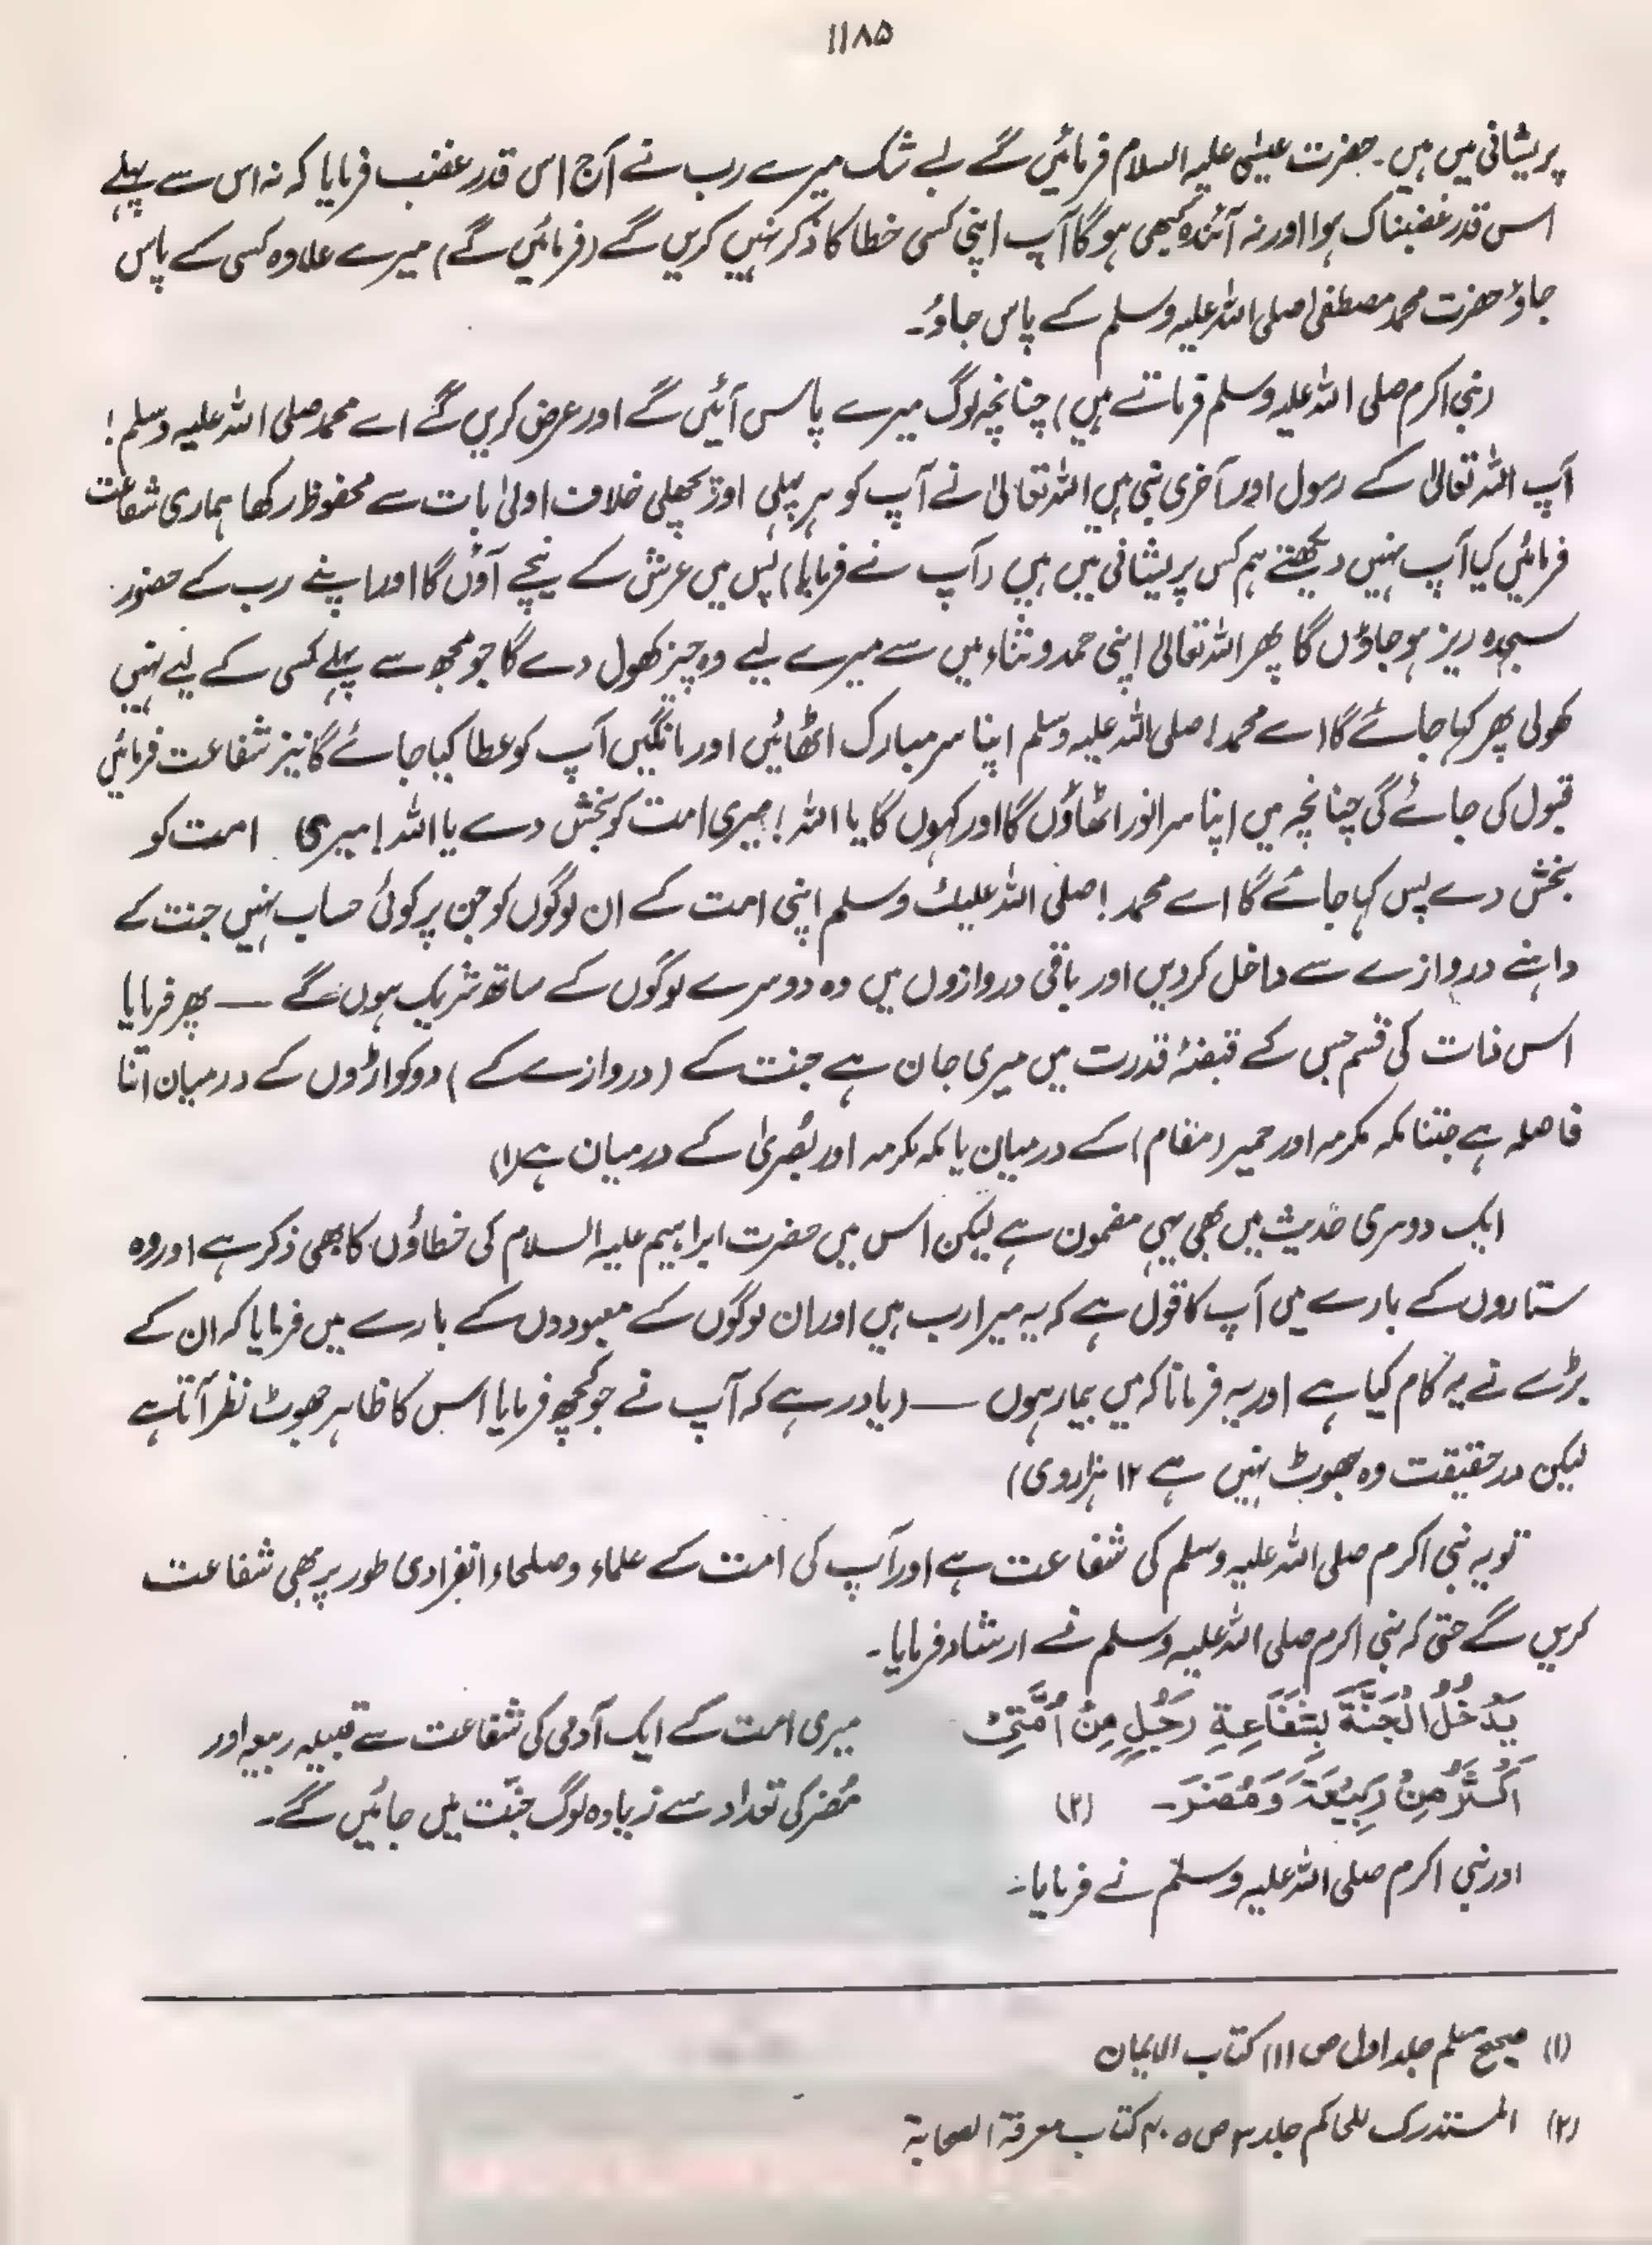 ۱۱۸۵
پریشانی میں ہیں۔ حضرت عیسیٰ علیہ السلام فرمائیں گے بے شک میرے رب نے آج اس قدر غضب فرمایا کہ نہ اس سے پہلے
اس قدر غضبناک ہوا اور نہ آئندہ کبھی ہوگا آپ اپنی کسی خطا کا ذکر نہیں کریں گے (فرمائیں گے) میرے علاوہ کسی کے پاس
جاؤ حضرت محمد مصطفیٰ صلی اللہ علیہ وسلم کے پاس جاؤ۔
(نبی اکرم صلی اللہ علیہ وسلم فرماتے ہیں) چنانچہ لوگ میرے پاس آئیں گے اور عرض کریں گے اے محمد صلی اللہ علیہ وسلم!
آپ اللہ تعالیٰ کے رسول اور آخری نبی ہیں اللہ تعالیٰ نے آپ کو ہر پہلی اور پچھلی خلاف اولیٰ بات سے محفوظ رکھا ہماری شفاعت
فرمائیں کیا آپ نہیں دیکھتے ہم کس پریشانی میں ہیں (آپ نے فرمایا) پس میں عرش کے نیچے آؤں گا اور اپنے رب کے حضور
سجدہ ریز ہو جاؤں گا پھر اللہ تعالیٰ اپنی حمد و ثناء میں سے میرے لیے وہ چیز کھول دے گا جو مجھ سے پہلے کسی کے لیے نہیں
کھولی پھر کہا جائے گا اے محمد! صلی اللہ علیہ وسلم اپنا سر مبارک اٹھائیں اور مانگیں آپ کو عطا کیا جائے گا نیز شفاعت فرمائیں
قبول کی جائے گی چنانچہ میں اپنا سر انور اٹھاؤں گا اور کہوں گا یا اللہ! میری امت کو بخش دے یا اللہ! میری امت کو
بخش دے پس کہا جائے گا اے محمد! صلی اللہ علیک وسلم اپنی امت کے ان لوگوں کو جن پر کوئی حساب نہیں جنت کے
داہنے دروازے سے داخل کر دیں اور باقی دروازوں میں وہ دوسرے لوگوں کے ساتھ شریک ہوں گے — پھر فرمایا
اس ذات کی قسم جس کے قبضۂ قدرت میں میری جان ہے جنت کے (دروازے کے) دو کواڑوں کے درمیان اتنا
فاصلہ ہے جتنا مکہ مکرمہ اور حمیر (مقام) کے درمیان یا مکہ مکرمہ اور بُصریٰ کے درمیان ہے (۱)
ایک دوسری حدیث میں بھی یہی مضمون ہے لیکن اس میں حضرت ابراہیم علیہ السلام کی خطاؤں کا بھی ذکر ہے اور وہ
ستاروں کے بارے میں آپ کا قول ہے کہ یہ میرا رب ہیں اور ان لوگوں کے معبودوں کے بارے میں فرمایا کہ ان کے
بڑے نے یہ کام کیا ہے اور یہ فرمانا کہ میں بیمار ہوں — (یاد رہے کہ آپ نے جو کچھ فرمایا اس کا ظاہر جھوٹ نظر آتا ہے
لیکن درحقیقت وہ جھوٹ نہیں ہے ۱۲ ہزاروی)
تو یہ نبی اکرم صلی اللہ علیہ وسلم کی شفاعت ہے اور آپ کی امت کے علماء و صلحاء انفرادی طور پر بھی شفاعت
کریں گے حتیٰ کہ نبی اکرم صلی اللہ علیہ وسلم نے ارشاد فرمایا۔
یَدْخُلُ الْجَنَّةَ بِشَفَاعَةِ رَجُلٍ مِنْ اُمَّتِیْ
اَکْثَرُ مِنْ رَبِیْعَةَ وَمُضَرَ۔ (۲)
میری امت کے ایک آدمی کی شفاعت سے قبیلہ ربیعہ اور
مُضر کی تعداد سے زیادہ لوگ جنّت میں جائیں گے۔
اور نبی اکرم صلی اللہ علیہ وسلم نے فرمایا:
(۱) صحیح مسلم جلد اول ص ۱۱۱ کتاب الایمان
(۲) المستدرک للحاکم جلد ۳ ص ۴۰۵ کتاب معرفۃ الصحابۃ